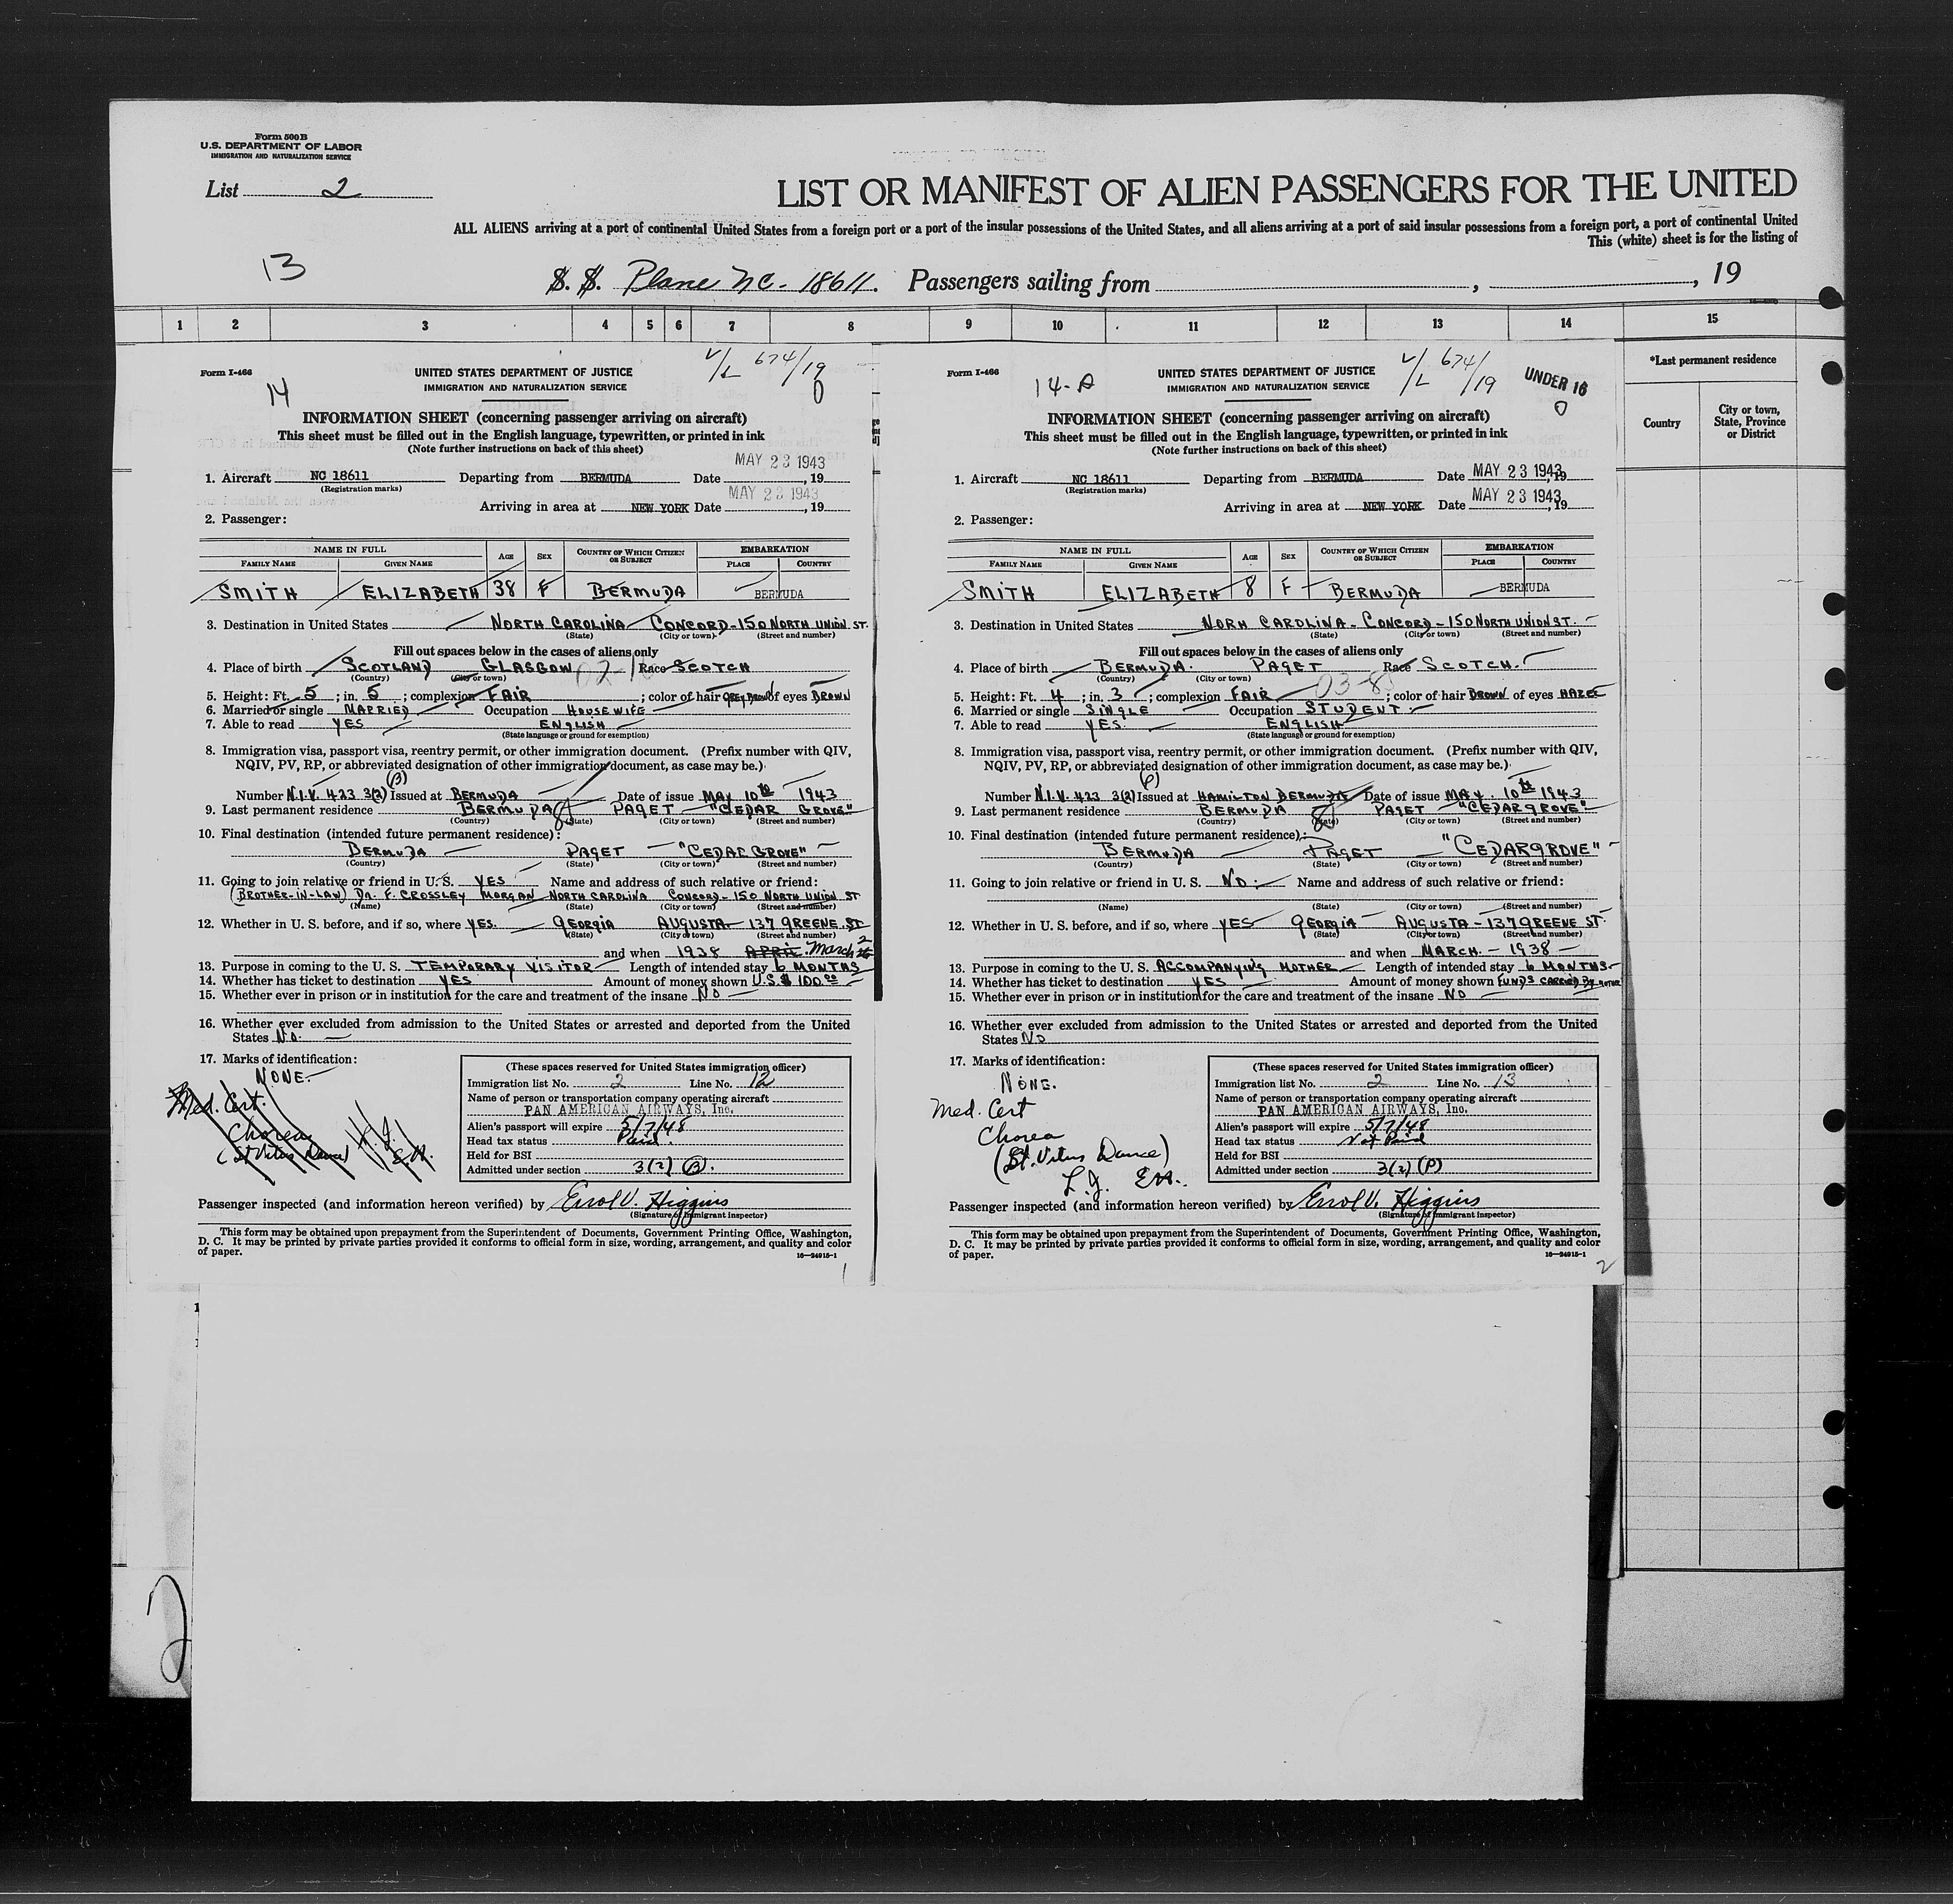 Form 500B
U.S. DEPARTMENT OF LABOR
IMMIGRATION AND NATURALIZATION SERVICE
List 2
LIST OR MANIFEST OF ALIEN PASSENGERS FOR THE UNITED
ALL ALIENS arriving at a port of continental United States from a foreign port or a port of the insular possessions of the United States, and all aliens arriving at a port of said insular possessions from a foreign port, a port of continental United
This (white) sheet is for the listing of
13
S. S. Plane NC-18611. Passengers sailing from , , 19
1 2 3 4 5 6 7 8 9 10 11 12 13 14 15
*Last permanent residence
Country
City or town, State, Province or District
Form I-466
14
UNITED STATES DEPARTMENT OF JUSTICE
IMMIGRATION AND NATURALIZATION SERVICE
V/L 674/19
0
INFORMATION SHEET (concerning passenger arriving on aircraft)
This sheet must be filled out in the English language, typewritten, or printed in ink
(Note further instructions on back of this sheet)
MAY 23 1943
1. Aircraft NC 18611 Departing from BERMUDA Date , 19
(Registration marks)
MAY 23 1943
Arriving in area at NEW YORK Date , 19
2. Passenger:
NAME IN FULL AGE SEX COUNTRY OF WHICH CITIZEN OR SUBJECT EMBARKATION
FAMILY NAME GIVEN NAME PLACE COUNTRY
SMITH ELIZABETH 38 F BERMUDA BERMUDA
3. Destination in United States NORTH CAROLINA CONCORD-150 NORTH UNION ST.
(State) (City or town) (Street and number)
Fill out spaces below in the cases of aliens only
4. Place of birth SCOTLAND GLASGOW Race SCOTCH
(Country) (City or town)
5. Height: Ft. 5 ; in. 5 ; complexion FAIR ; color of hair GREY BROWN of eyes BROWN
6. Married or single MARRIED Occupation HOUSEWIFE
7. Able to read YES ENGLISH
(State language or ground for exemption)
8. Immigration visa, passport visa, reentry permit, or other immigration document. (Prefix number with QIV,
NQIV, PV, RP, or abbreviated designation of other immigration document, as case may be.)
(B)
Number N.I.V. 423 3(2) Issued at BERMUDA Date of issue MAY 10th 1943
9. Last permanent residence BERMUDA PAGET "CEDAR GROVE"
(Country) (State) (City or town) (Street and number)
10. Final destination (intended future permanent residence):
BERMUDA PAGET "CEDAR GROVE"
(Country) (State) (City or town) (Street and number)
11. Going to join relative or friend in U.S. YES Name and address of such relative or friend:
(BROTHER-IN-LAW) DR. F. CROSSLEY MORGAN NORTH CAROLINA CONCORD-150 NORTH UNION ST
(Name) (State) (City or town) (Street and number)
12. Whether in U. S. before, and if so, where YES. GEORGIA AUGUSTA 137 GREENE ST
(State) (City or town) (Street and number)
and when 1938 APRIL March
13. Purpose in coming to the U. S. TEMPORARY VISITOR Length of intended stay 6 MONTHS
14. Whether has ticket to destination YES Amount of money shown U.S.$ 100.00
15. Whether ever in prison or in institution for the care and treatment of the insane NO
16. Whether ever excluded from admission to the United States or arrested and deported from the United
States NO.
17. Marks of identification:
NONE.
Med. Cert.
Chorea
(St Vitus Dance)
(These spaces reserved for United States immigration officer)
Immigration list No. 2 Line No. 12
Name of person or transportation company operating aircraft
PAN AMERICAN AIRWAYS, Inc.
Alien's passport will expire 5/7/48
Head tax status Paid
Held for BSI
Admitted under section 3(2) (B).
Passenger inspected (and information hereon verified) by Errol V. Higgins
(Signature of immigrant inspector)
This form may be obtained upon prepayment from the Superintendent of Documents, Government Printing Office, Washington,
D. C. It may be printed by private parties provided it conforms to official form in size, wording, arrangement, and quality and color
of paper.
16—24915-1
1
Form I-466
14-A
UNITED STATES DEPARTMENT OF JUSTICE
IMMIGRATION AND NATURALIZATION SERVICE
V/L 674/19
UNDER 16
0
INFORMATION SHEET (concerning passenger arriving on aircraft)
This sheet must be filled out in the English language, typewritten, or printed in ink
(Note further instructions on back of this sheet)
1. Aircraft NC 18611 Departing from BERMUDA Date MAY 23 1943, 19
(Registration marks)
Arriving in area at NEW YORK Date MAY 23 1943, 19
2. Passenger:
NAME IN FULL AGE SEX COUNTRY OF WHICH CITIZEN OR SUBJECT EMBARKATION
FAMILY NAME GIVEN NAME PLACE COUNTRY
SMITH ELIZABETH 8 F BERMUDA BERMUDA
3. Destination in United States NORH CAROLINA - CONCORD - 150 NORTH UNION ST.
(State) (City or town) (Street and number)
Fill out spaces below in the cases of aliens only
4. Place of birth BERMUDA. PAGET Race SCOTCH.
(Country) (City or town)
5. Height: Ft. 4 ; in. 3 ; complexion FAIR ; color of hair BROWN of eyes HAZEL
6. Married or single SINGLE Occupation STUDENT.
7. Able to read YES. ENGLISH
(State language or ground for exemption)
8. Immigration visa, passport visa, reentry permit, or other immigration document. (Prefix number with QIV,
NQIV, PV, RP, or abbreviated designation of other immigration document, as case may be.)
(P)
Number N.I.V. 423 3(2) Issued at HAMILTON BERMUDA Date of issue MAY. 10th 1943
9. Last permanent residence BERMUDA PAGET "CEDARGROVE"
(Country) (State) (City or town) (Street and number)
10. Final destination (intended future permanent residence):
BERMUDA PAGET "CEDARGROVE"
(Country) (State) (City or town) (Street and number)
11. Going to join relative or friend in U. S. NO. Name and address of such relative or friend:
(Name) (State) (City or town) (Street and number)
12. Whether in U. S. before, and if so, where YES GEORGIA AUGUSTA - 137 GREENE ST.
(State) (City or town) (Street and number)
and when MARCH. - 1938
13. Purpose in coming to the U. S. ACCOMPANYING MOTHER Length of intended stay 6 MONTHS.
14. Whether has ticket to destination YES Amount of money shown FUNDS CARRIED BY MOTHER
15. Whether ever in prison or in institution for the care and treatment of the insane NO
16. Whether ever excluded from admission to the United States or arrested and deported from the United
States NO
17. Marks of identification:
NONE.
Med. Cert
Chorea
(St. Vitus Dance)
(These spaces reserved for United States immigration officer)
Immigration list No. 2 Line No. 13
Name of person or transportation company operating aircraft
PAN AMERICAN AIRWAYS, Inc.
Alien's passport will expire 5/7/48
Head tax status Not Paid
Held for BSI
Admitted under section 3(2) (P)
Passenger inspected (and information hereon verified) by Errol V. Higgins
(Signature of immigrant inspector)
This form may be obtained upon prepayment from the Superintendent of Documents, Government Printing Office, Washington,
D. C. It may be printed by private parties provided it conforms to official form in size, wording, arrangement, and quality and color
of paper.
16—24915-1
2
2